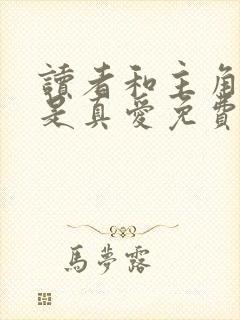 讀者和主角
是真愛免費
馬夢露